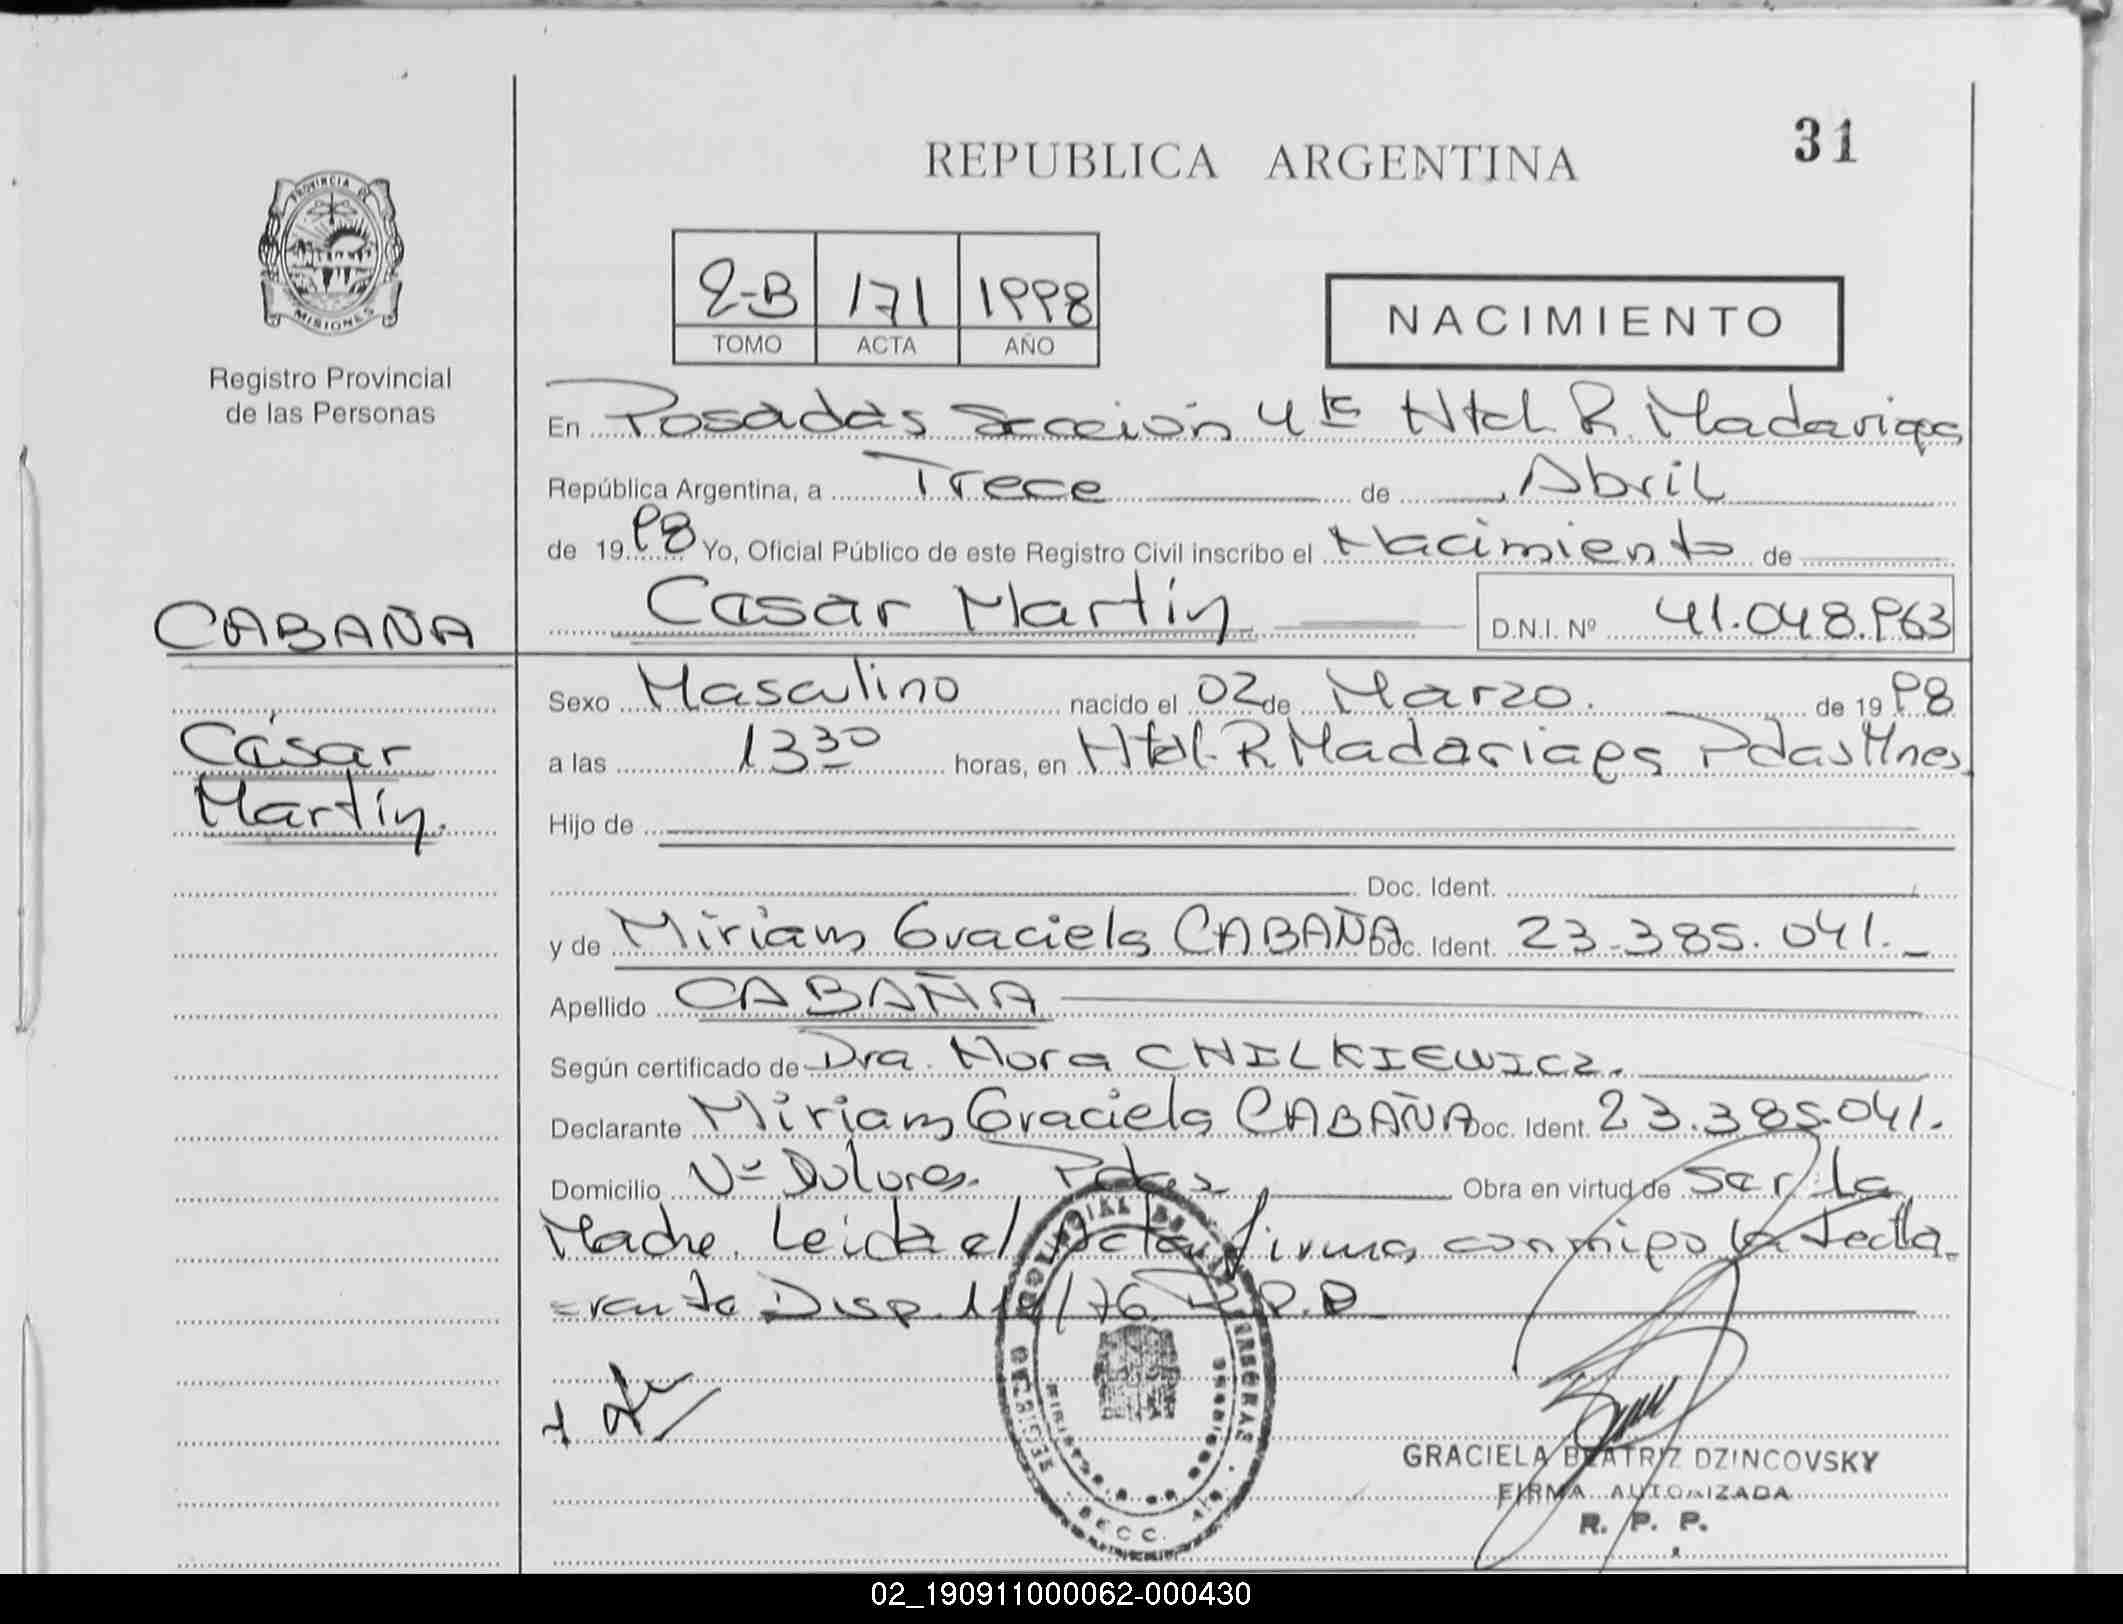 31
REPUBLICA ARGENTINA
PROVINCIA DE
MISIONES
Registro Provincial
de las Personas
2-B 171 1998
TOMO ACTA AÑO
NACIMIENTO
En Posadas Sección 4ta Htal R. Madariaga
República Argentina, a Trece de Abril
de 1998 Yo, Oficial Público de este Registro Civil inscribo el Nacimiento de
Casar Martín D.N.I. Nº 41.048.963
CABAÑA
Casar
Martín.
Sexo Masculino nacido el 02 de Marzo. de 1998
a las 13 30 horas, en Htal. R Madariaga Pdas Mnes
Hijo de
Doc. Ident.
y de Miriam Graciela CABAÑA Doc. Ident. 23.385.041.
Apellido CABAÑA
Según certificado de Dra. Nora CHILKIEWICZ.
Declarante Miriam Graciela CABAÑA Doc. Ident. 23.385.041.
Domicilio Vª Dolores. Pdas Obra en virtud de ser la
Madre. Leida el Acta firma conmigo la decla
rante Disp. /76 R.P.P
GRACIELA BEATRIZ DZINCOVSKY
FIRMA AUTORIZADA
R. P. P.
02_190911000062-000430